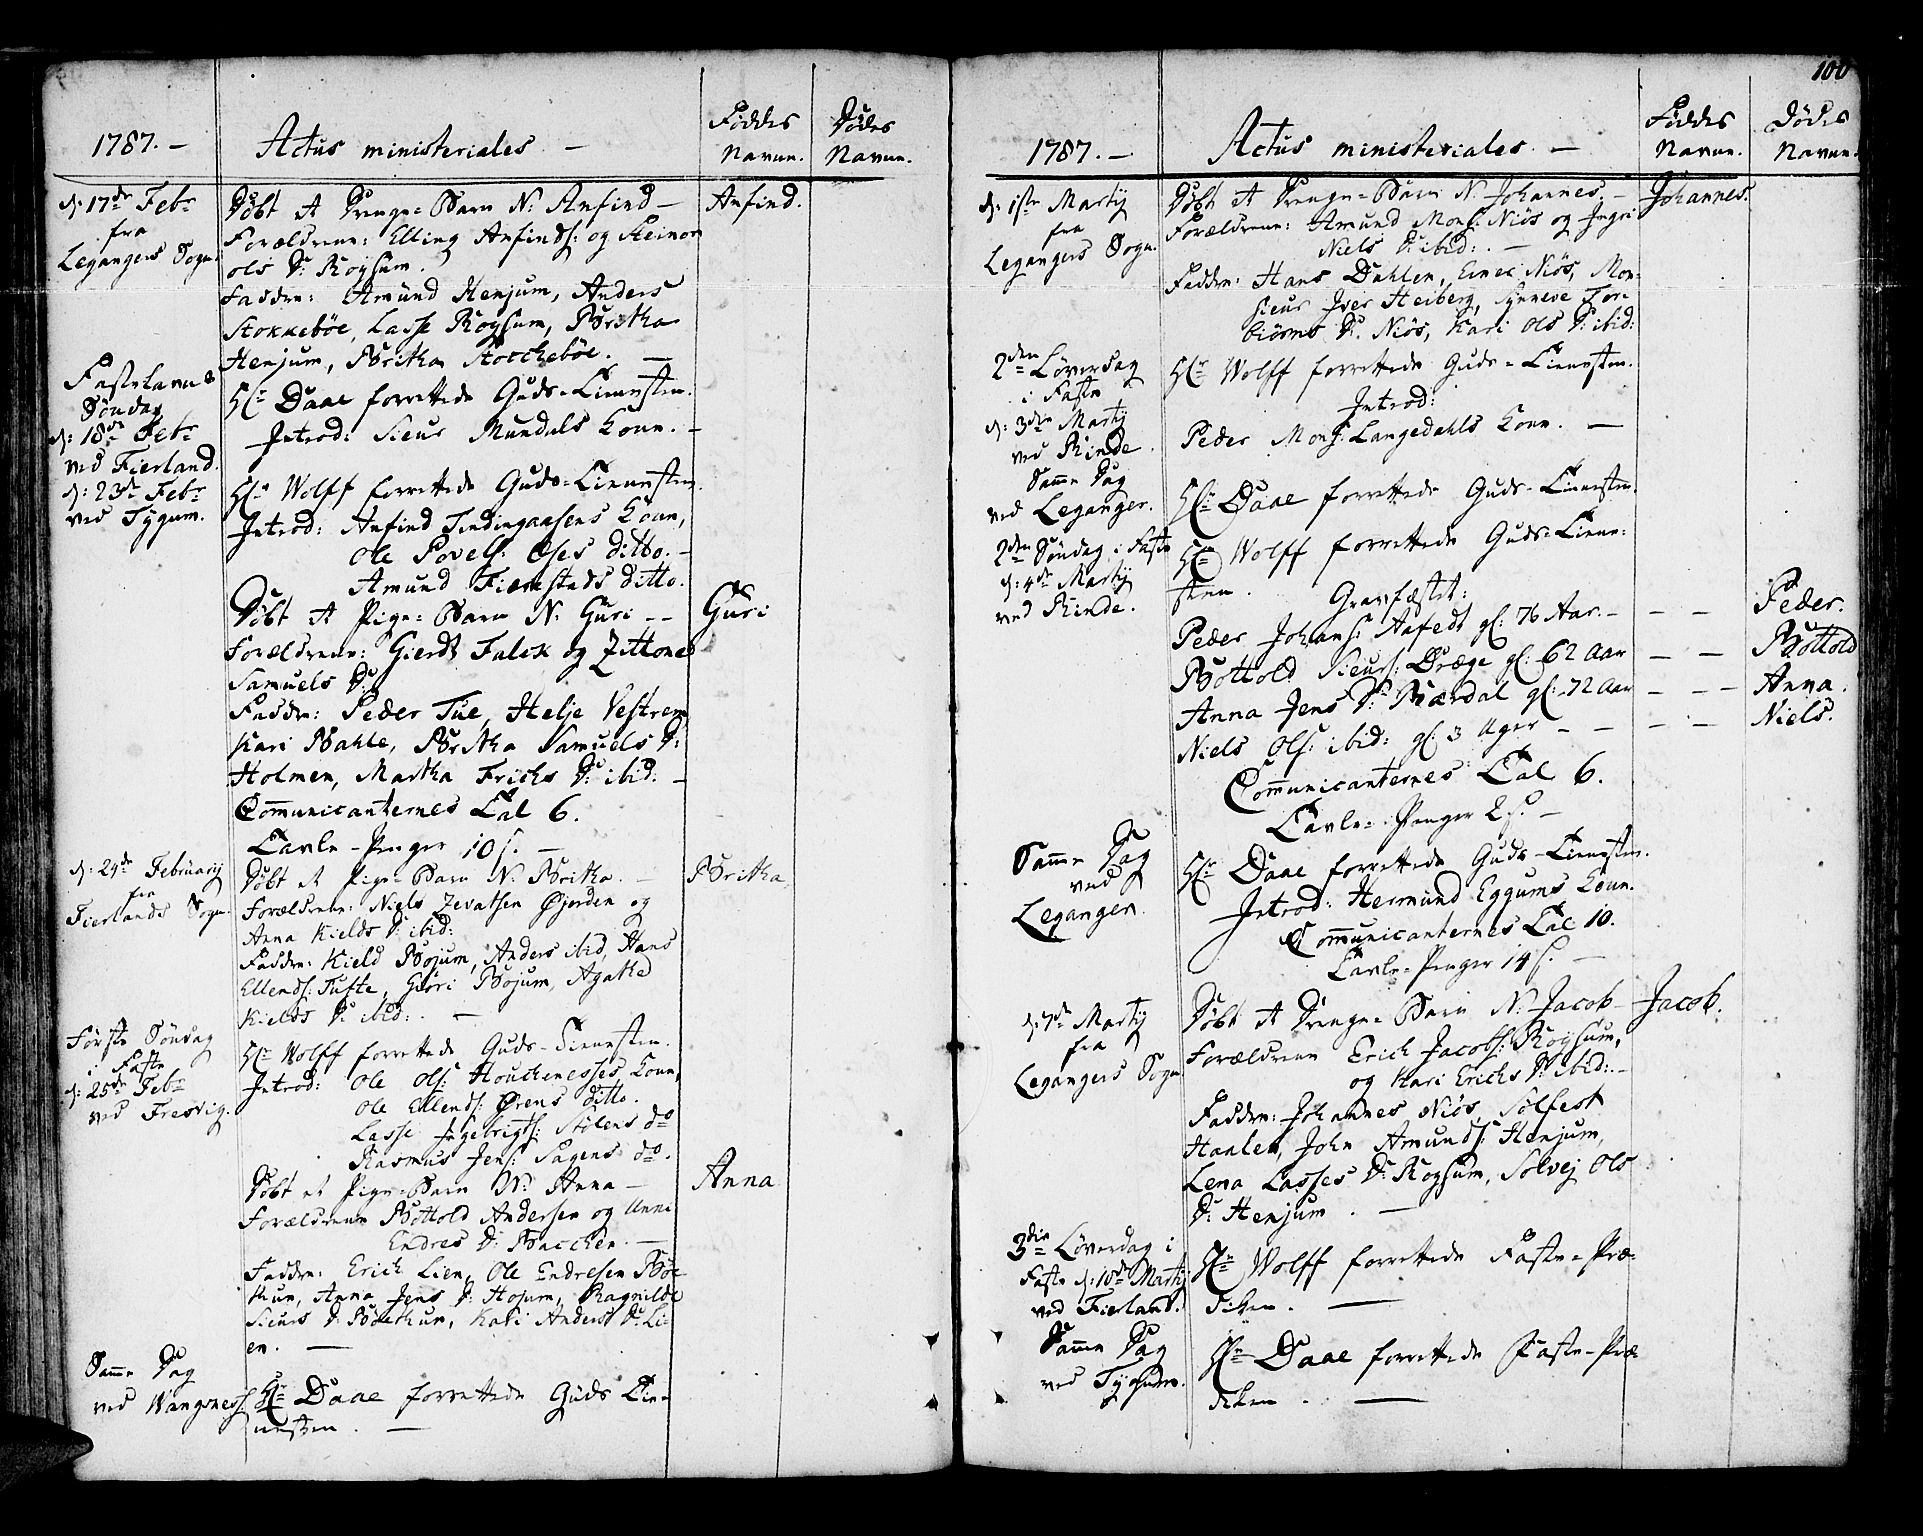 1787. –
Actus ministeriales. –
Føddes
Navne.
Dødes
Navne.
d: 17de Febr
fra
Legangers Sogn.
Døbt et Drenge-Barn N: Anfind –
Anfind.
Forældrene: Elling Anfinds: og Steinor
Ols D: Røysum.
Faddre: Amund Henjum, Anders
Stokkebøe, Lasse Røysum, Britha
Henjum, Britha Stocchebøe. –
Fastelavns
Søndag
d: 18de Febr
ved Fierland.
Hr Daae forrettede Guds-Tienesten.
Introd: Sieur Mundals Kone. –
d: 23de Febr
ved Tygum.
Hr Wolff forrettede Guds-Tienesten.
Introd: Anfind Tendingaasens Kone,
Ole Povels: Eses ditto. –
Amund Fiærestads ditto.
Døbt et Pige-Barn N: Guri – –
Guri
Forældrene: Gierdt Falck og Zittone
Samuels D:
Faddre: Peder Tue, Helje Vestrem
Kari Bahle, Britha Samuels D:
Holmen, Martha Frichs D: ibid: –
Com̃unicanternes Tal 6.
Tavle-Penger 10 s. –
d: 24de February
fra
Fierlands Sogn.
Døbt et Pige-Barn N: Britha. –
Britha.
Forældrene: Niels Zevatsen Øjorden og
Anna Kields D: ibid:
Faddre: Kield Bøjum, Anders ibid, Hans
Ellends: Tufte, Giøri Bøjum, Agathe
Kields D: ibid: . –
Første Søndag
i Faste
d: 25de Febr
ved Fresvig.
Hr Wolff forrettede Guds-Tienesten.
Introd: Ole Ols: Houchenesses Kone,
Ole Ellends: Ørens ditto.
Lasse Ingebrigts: Stølens do
Rasmus Jens: Sagens do.
Døbt et Pige-Barn N: Anna –
Anna
Forældrene Bottold Andersen og Unni
Endres D: Bacchen. –
Faddre: Erich Lien, Ole Endresen Bøe
kun, Anna Jens D: Hojum, Ragnilde
Sieurs D: Bøethun, Kari Anders D: Li-
en. –
Sam̃e Dag
ved Wangsness.
Hr Daae forrettede Guds Tie-
nesten. –
100
1787. –
Actus ministeriales. –
Føddes
Navne.
Dødes
Navne.
d: 1ste Martij
fra
Legangers Sogn.
Døbt et Drenge-Barn N: Johannes. –
Johannes.
Forældrene: Amund Mons: Niøs og Ingri
Niels D: ibid: . –
Faddre: Hans Dahlen, Einer Niøs, Mon-
sieur Iver Heiberg, Synneve Tor-
biørns D: Niøs, Kari Ols D: ibid:
2den Løverdag
i Faste
d: 3die Martij
ved Rinde.
Hr Wolff forrettede Guds-Tienesten.
Introd:
Peder Mons: Langedahls Kone. –
Sam̃e Dag
ved Leganger.
Hr Daae forrettede Guds-Tienesten.
2den Søndag i Faste
d: 4de Martij
ved Rinde.
Hr Wolff forrettede Guds-Tiene-
sten.
Gravfæstet:
Peder Johans: Aafedt gl: 76 Aar. – – –
Peder.
Bottold Sieurs: Dræge gl: 62 Aar – –
Bottold
Anna Jens D: Bærdal gl: 72 Aar – – –
Anna.
Niels Ols: ibid: gl: 3 Uger – – – –
Niels.
Com̃unicanternes Tal 6.
Tavle-Penger 2 s. –
Sam̃e Dag
ved
Leganger.
Hr Daae forrettede Guds-Tienesten.
Introd: Hermund Eggums Kone.
Com̃unicanternes Tal 10.
Tavle-Penger 14 s. –
d: 7de Martij
fra
Legangers Sogn
Døbt et Drenge-Barn N: Jacob –
Jacob.
Forældrene Erich Jacobs: Røysum,
og Kari Erichs D: ibid: –
Faddre: Johannes Niøs, Sølfest
Haalen, John Amunds: Henjum,
Lena Lasses D: Røysum, Solvej Ols
D: Henjum. –
3die Løverdag i
Faste d: 10de Martij
ved Fierland.
Hr Wolff forrettede Faste-Præ-
diken. –
Sam̃e Dag
ved Tygum.
Hr Daae forrettede Faste-Præ-
diken. –